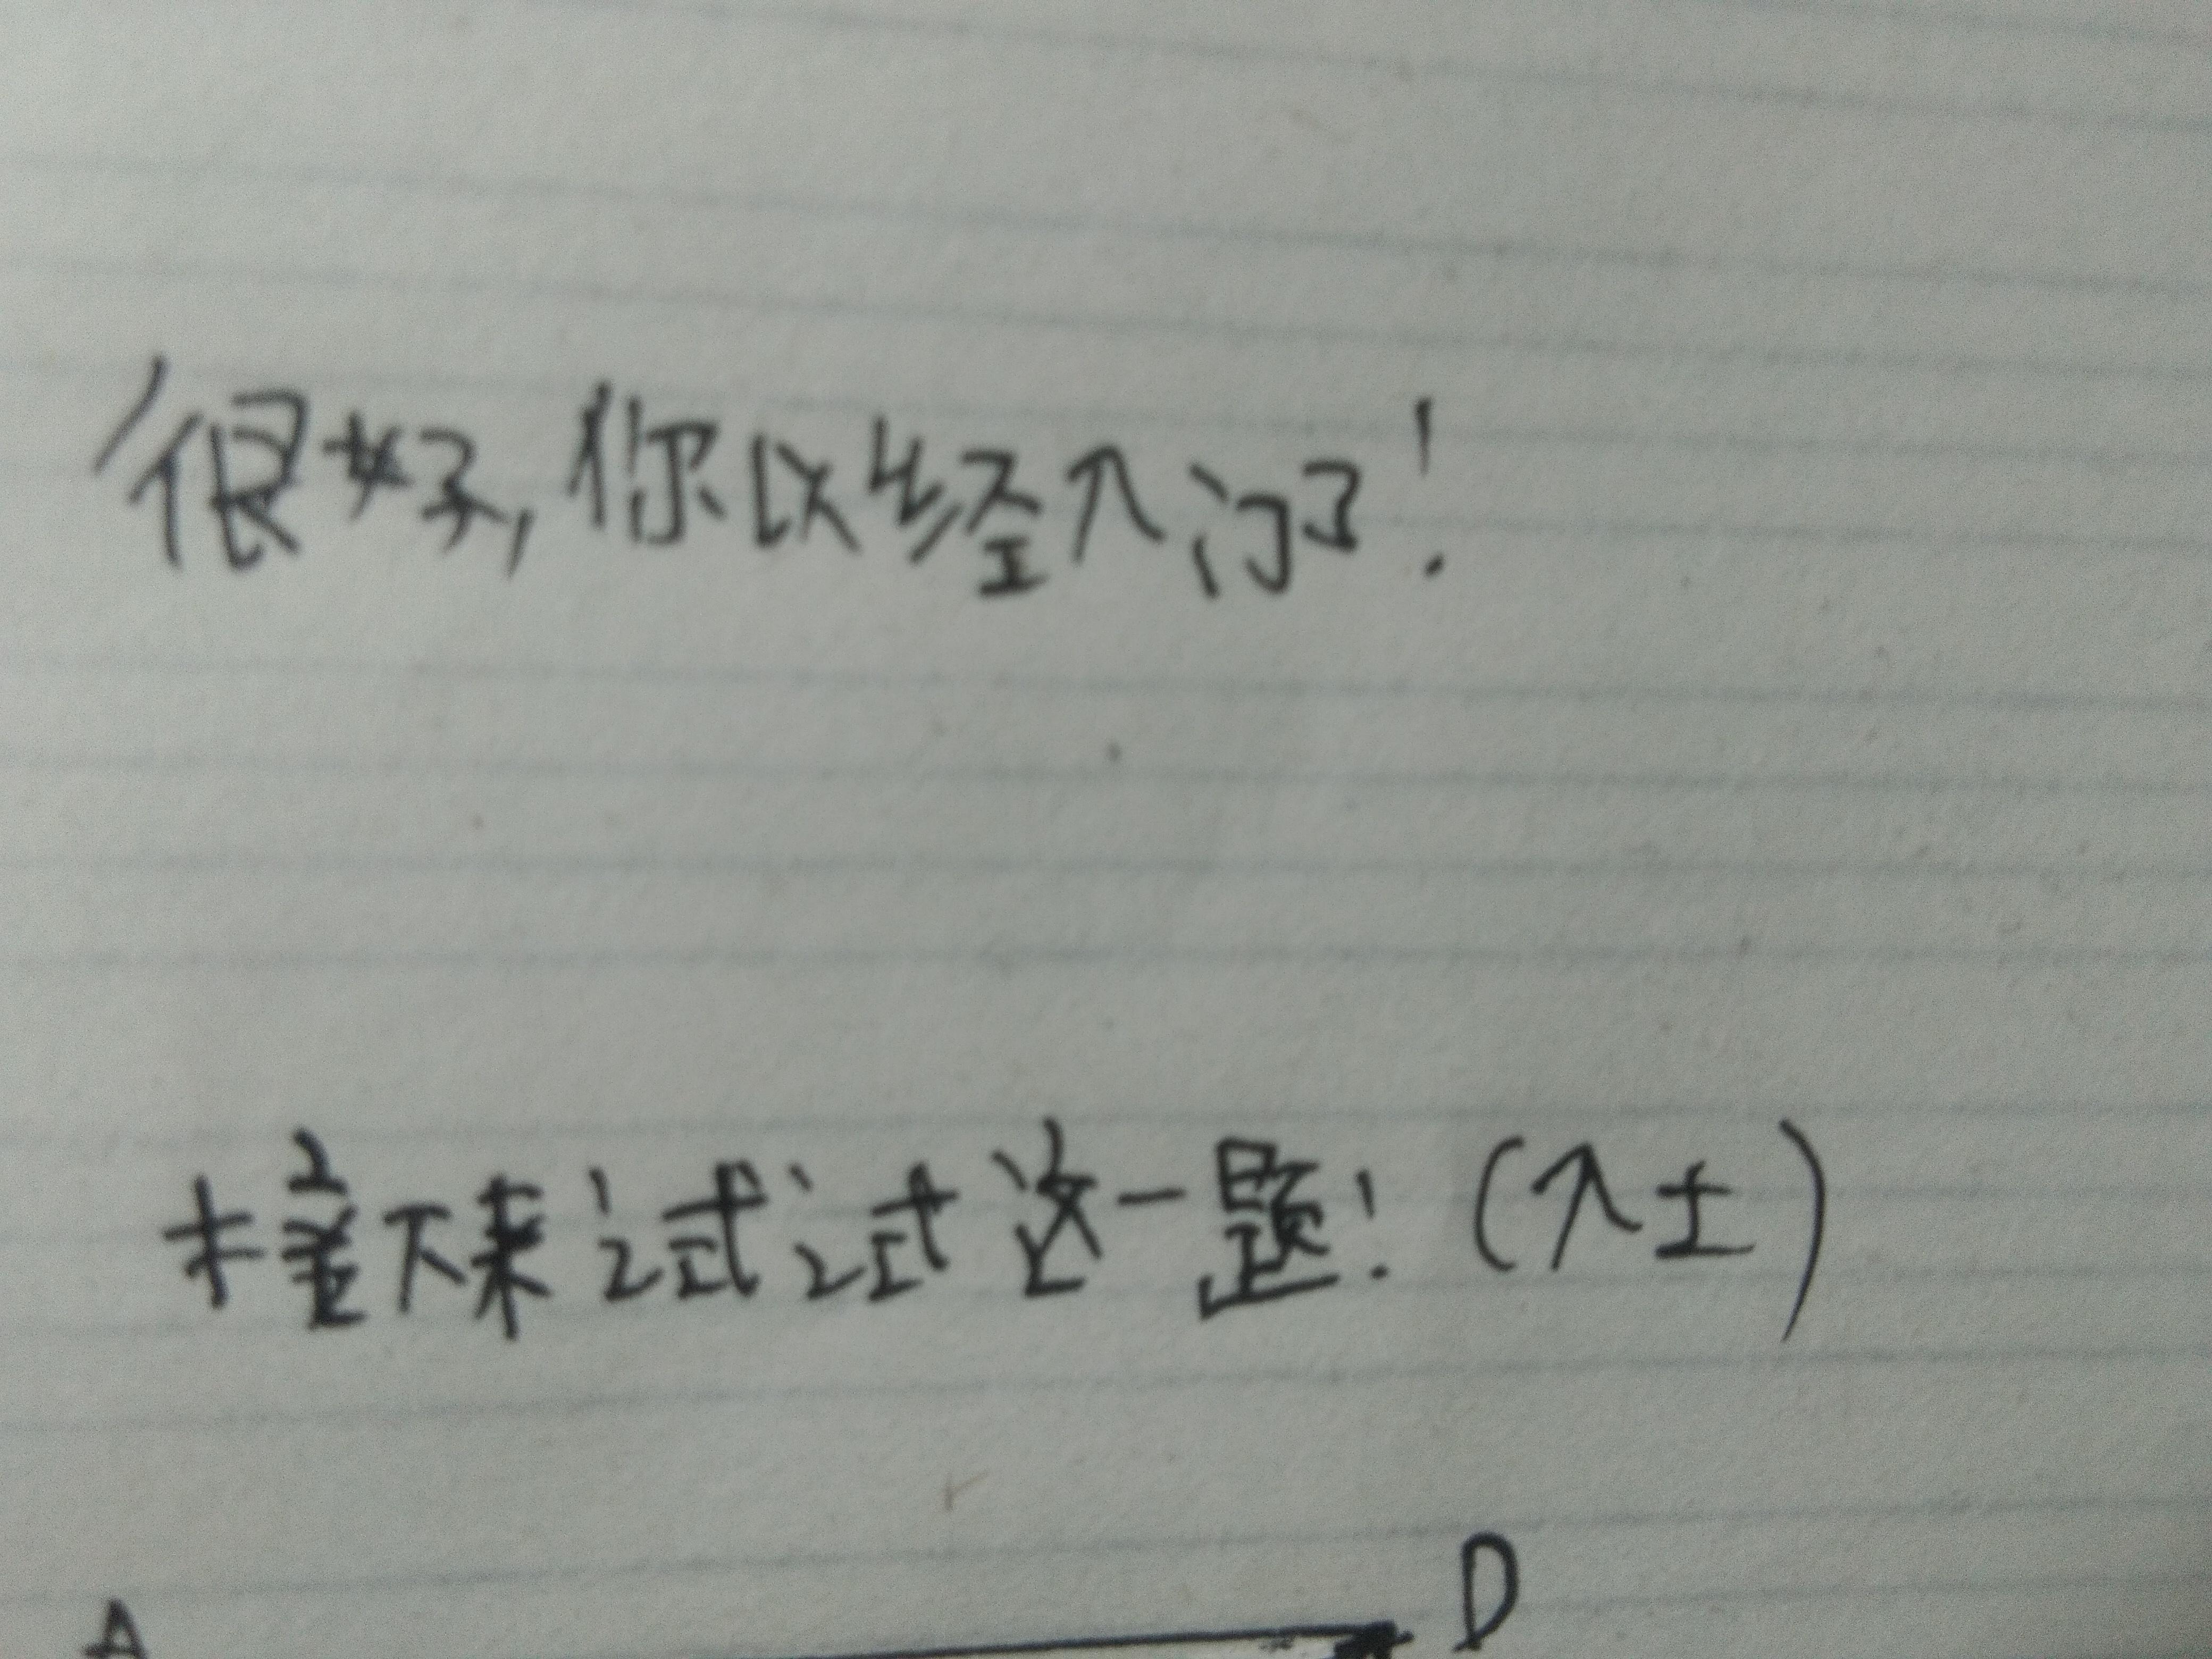 很好,你以经入门了!
接下来试试这一题!(入土)
D
A